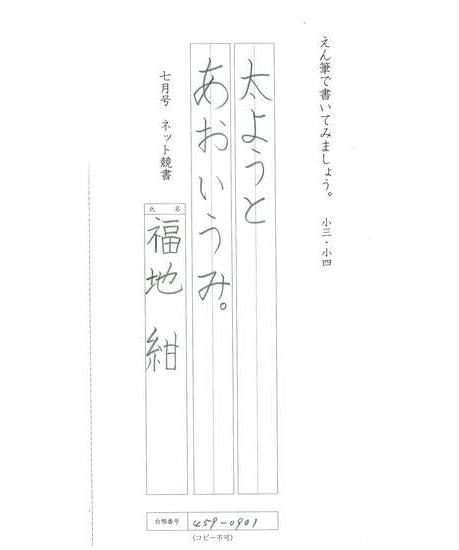 えん筆で書いてみましょう。 小三・小四
太ようと
あおいうみ。
七月号 ネット競書
氏名
福地 紺
台帳番号 459-0901
(コピー不可)